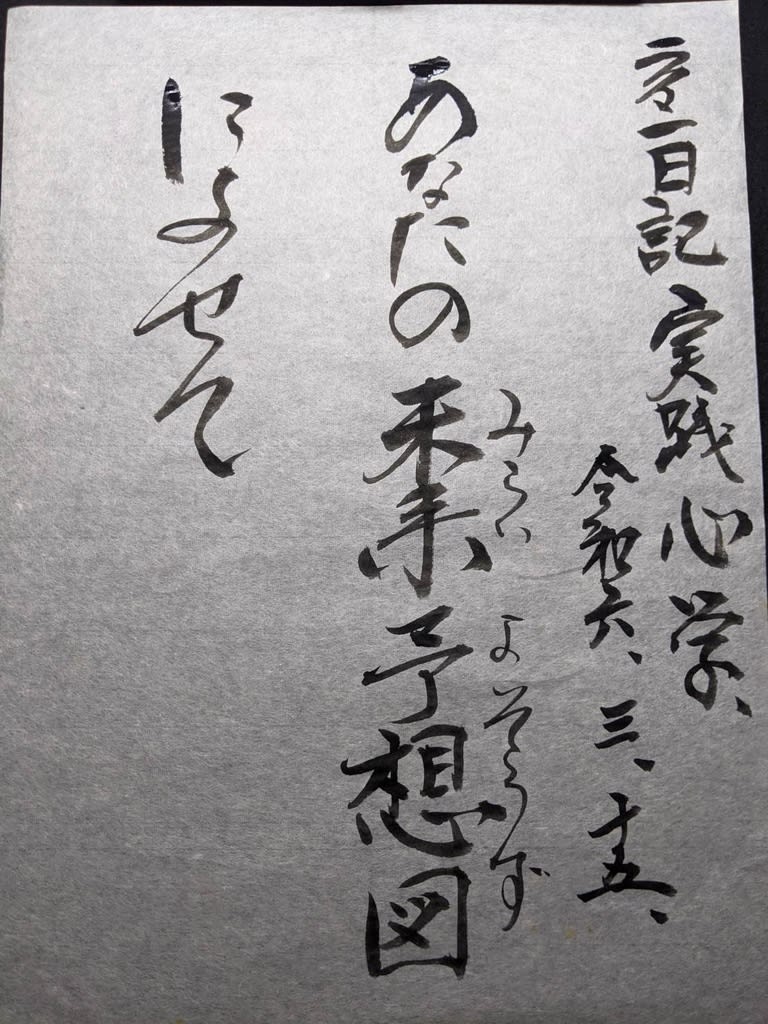 一日記 実践心学、
令和六、三、十五、
みらい よそうず
あなたの未来予想図
によせて